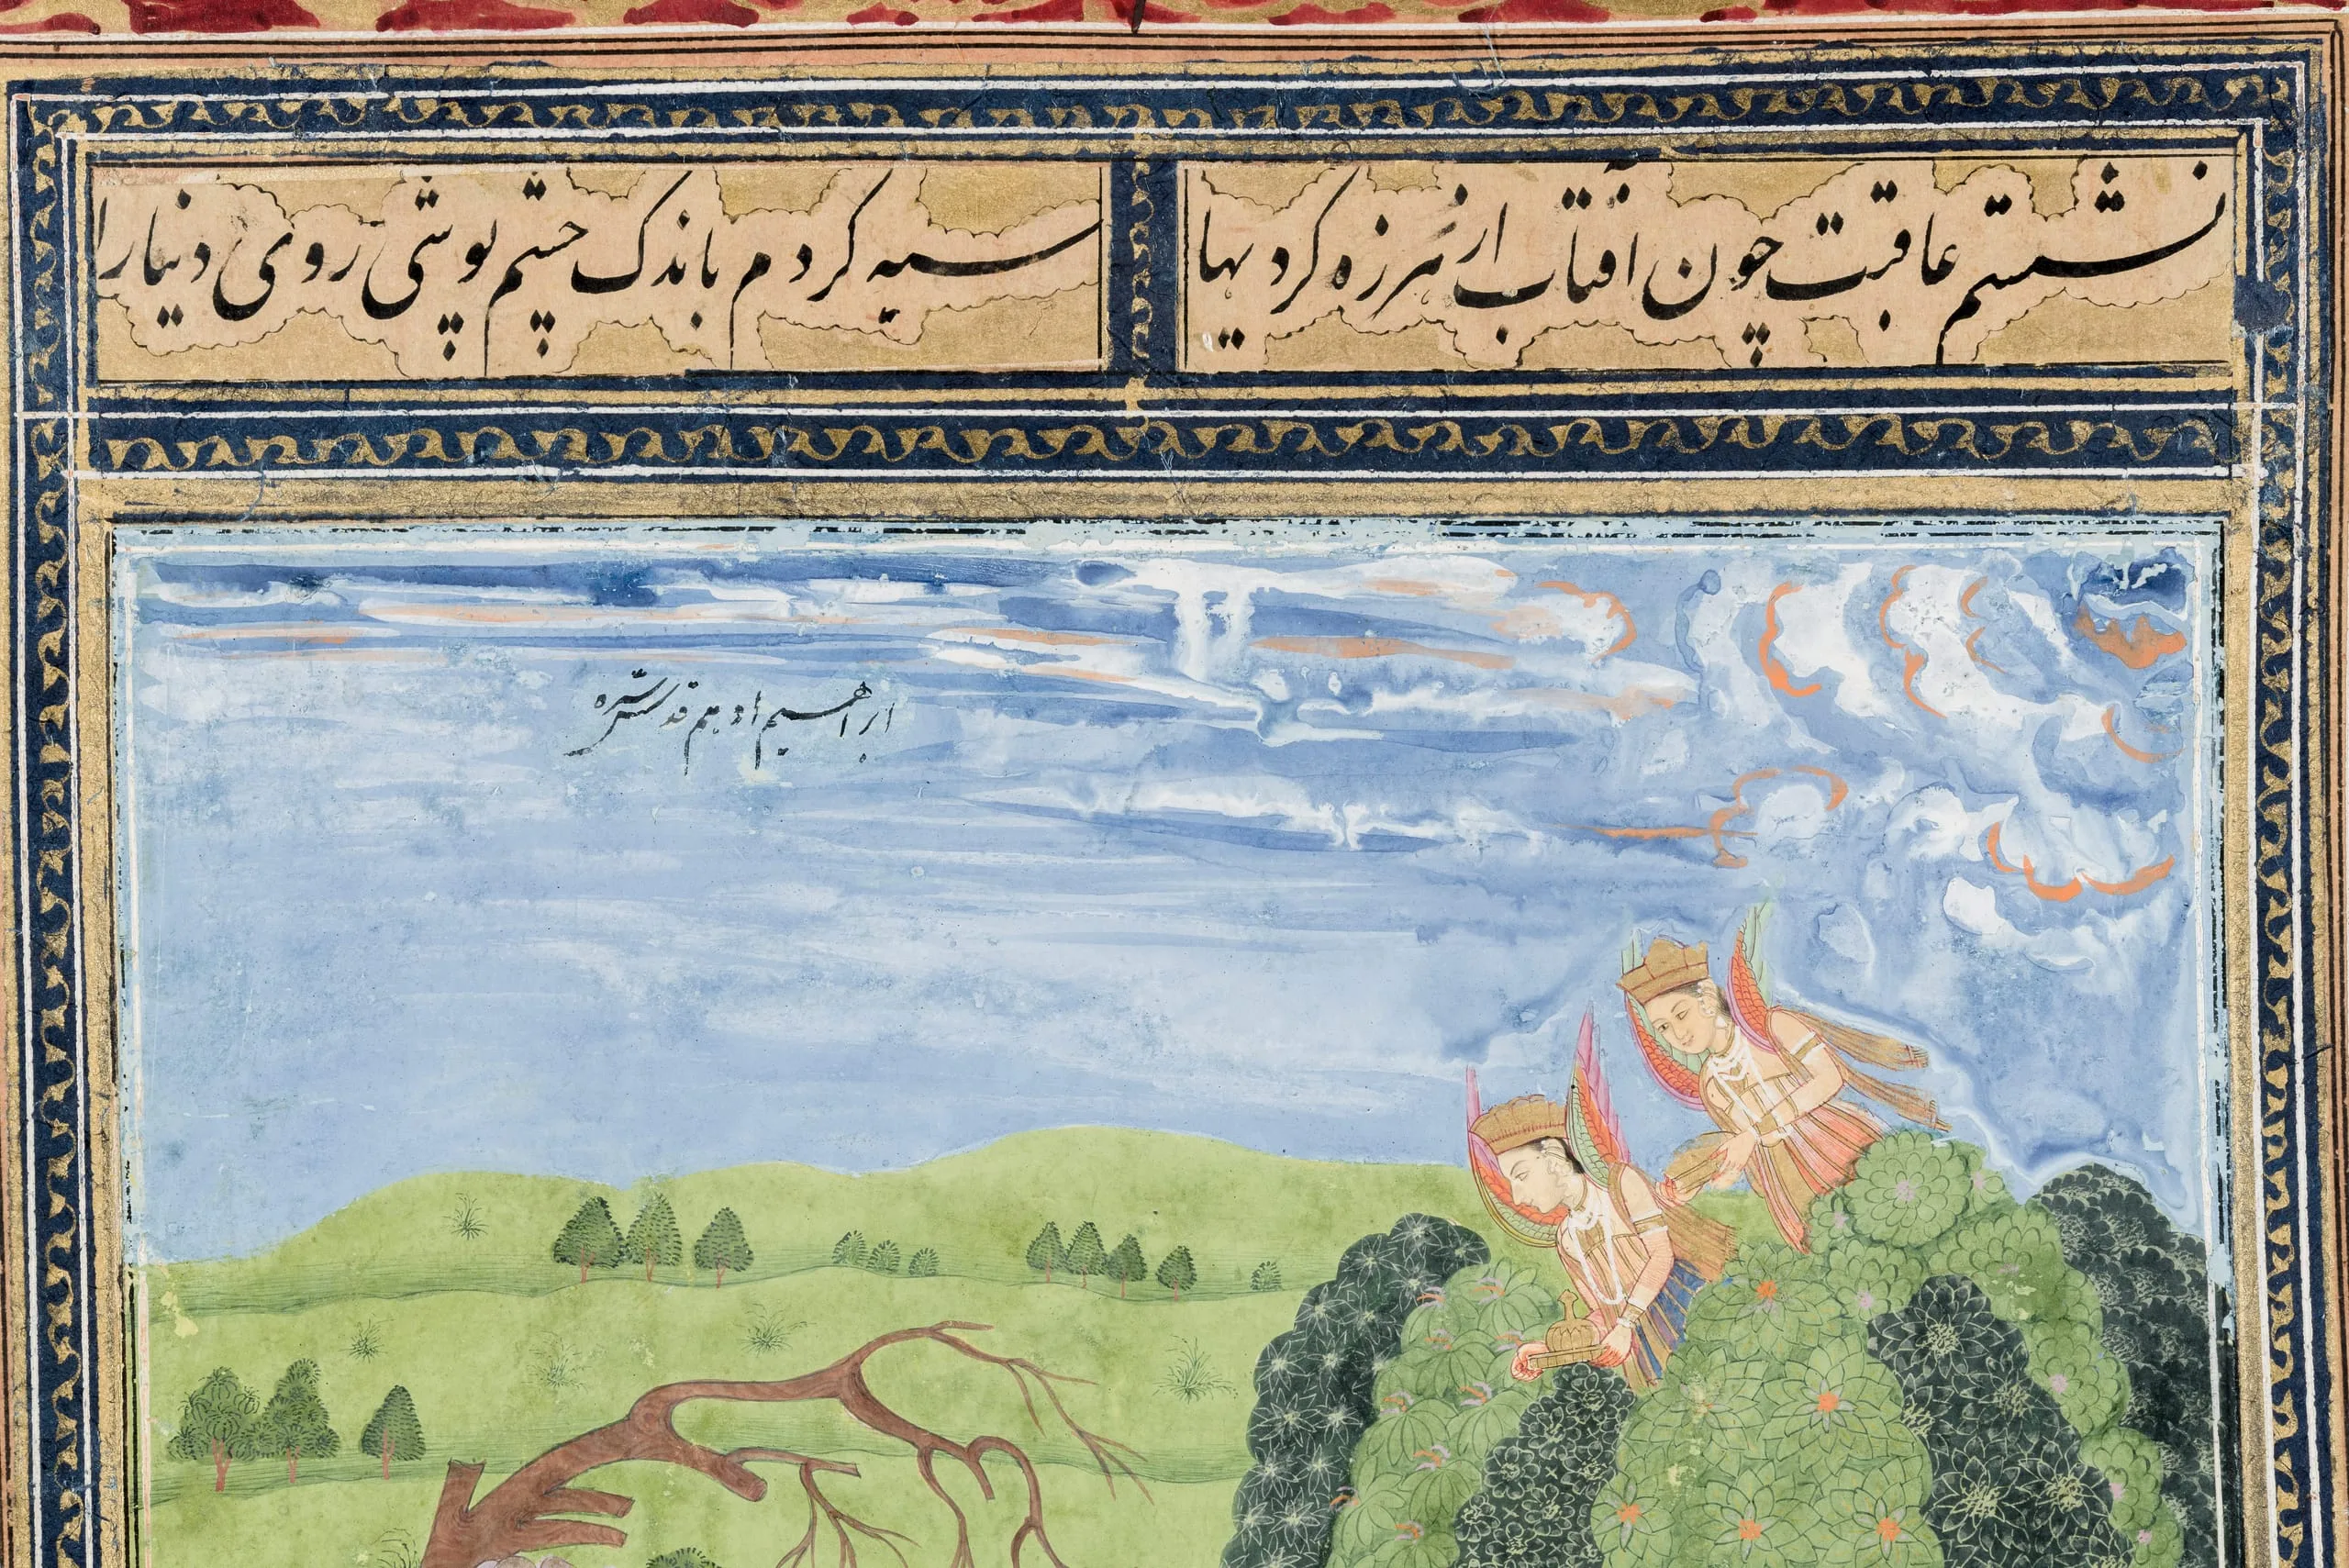 نشستم عاقبت چون آفتاب از هرزه کردیها
سیه کردم باندک چشم پوشی روی دنیا را
ابراهیم ادهم قدس سره